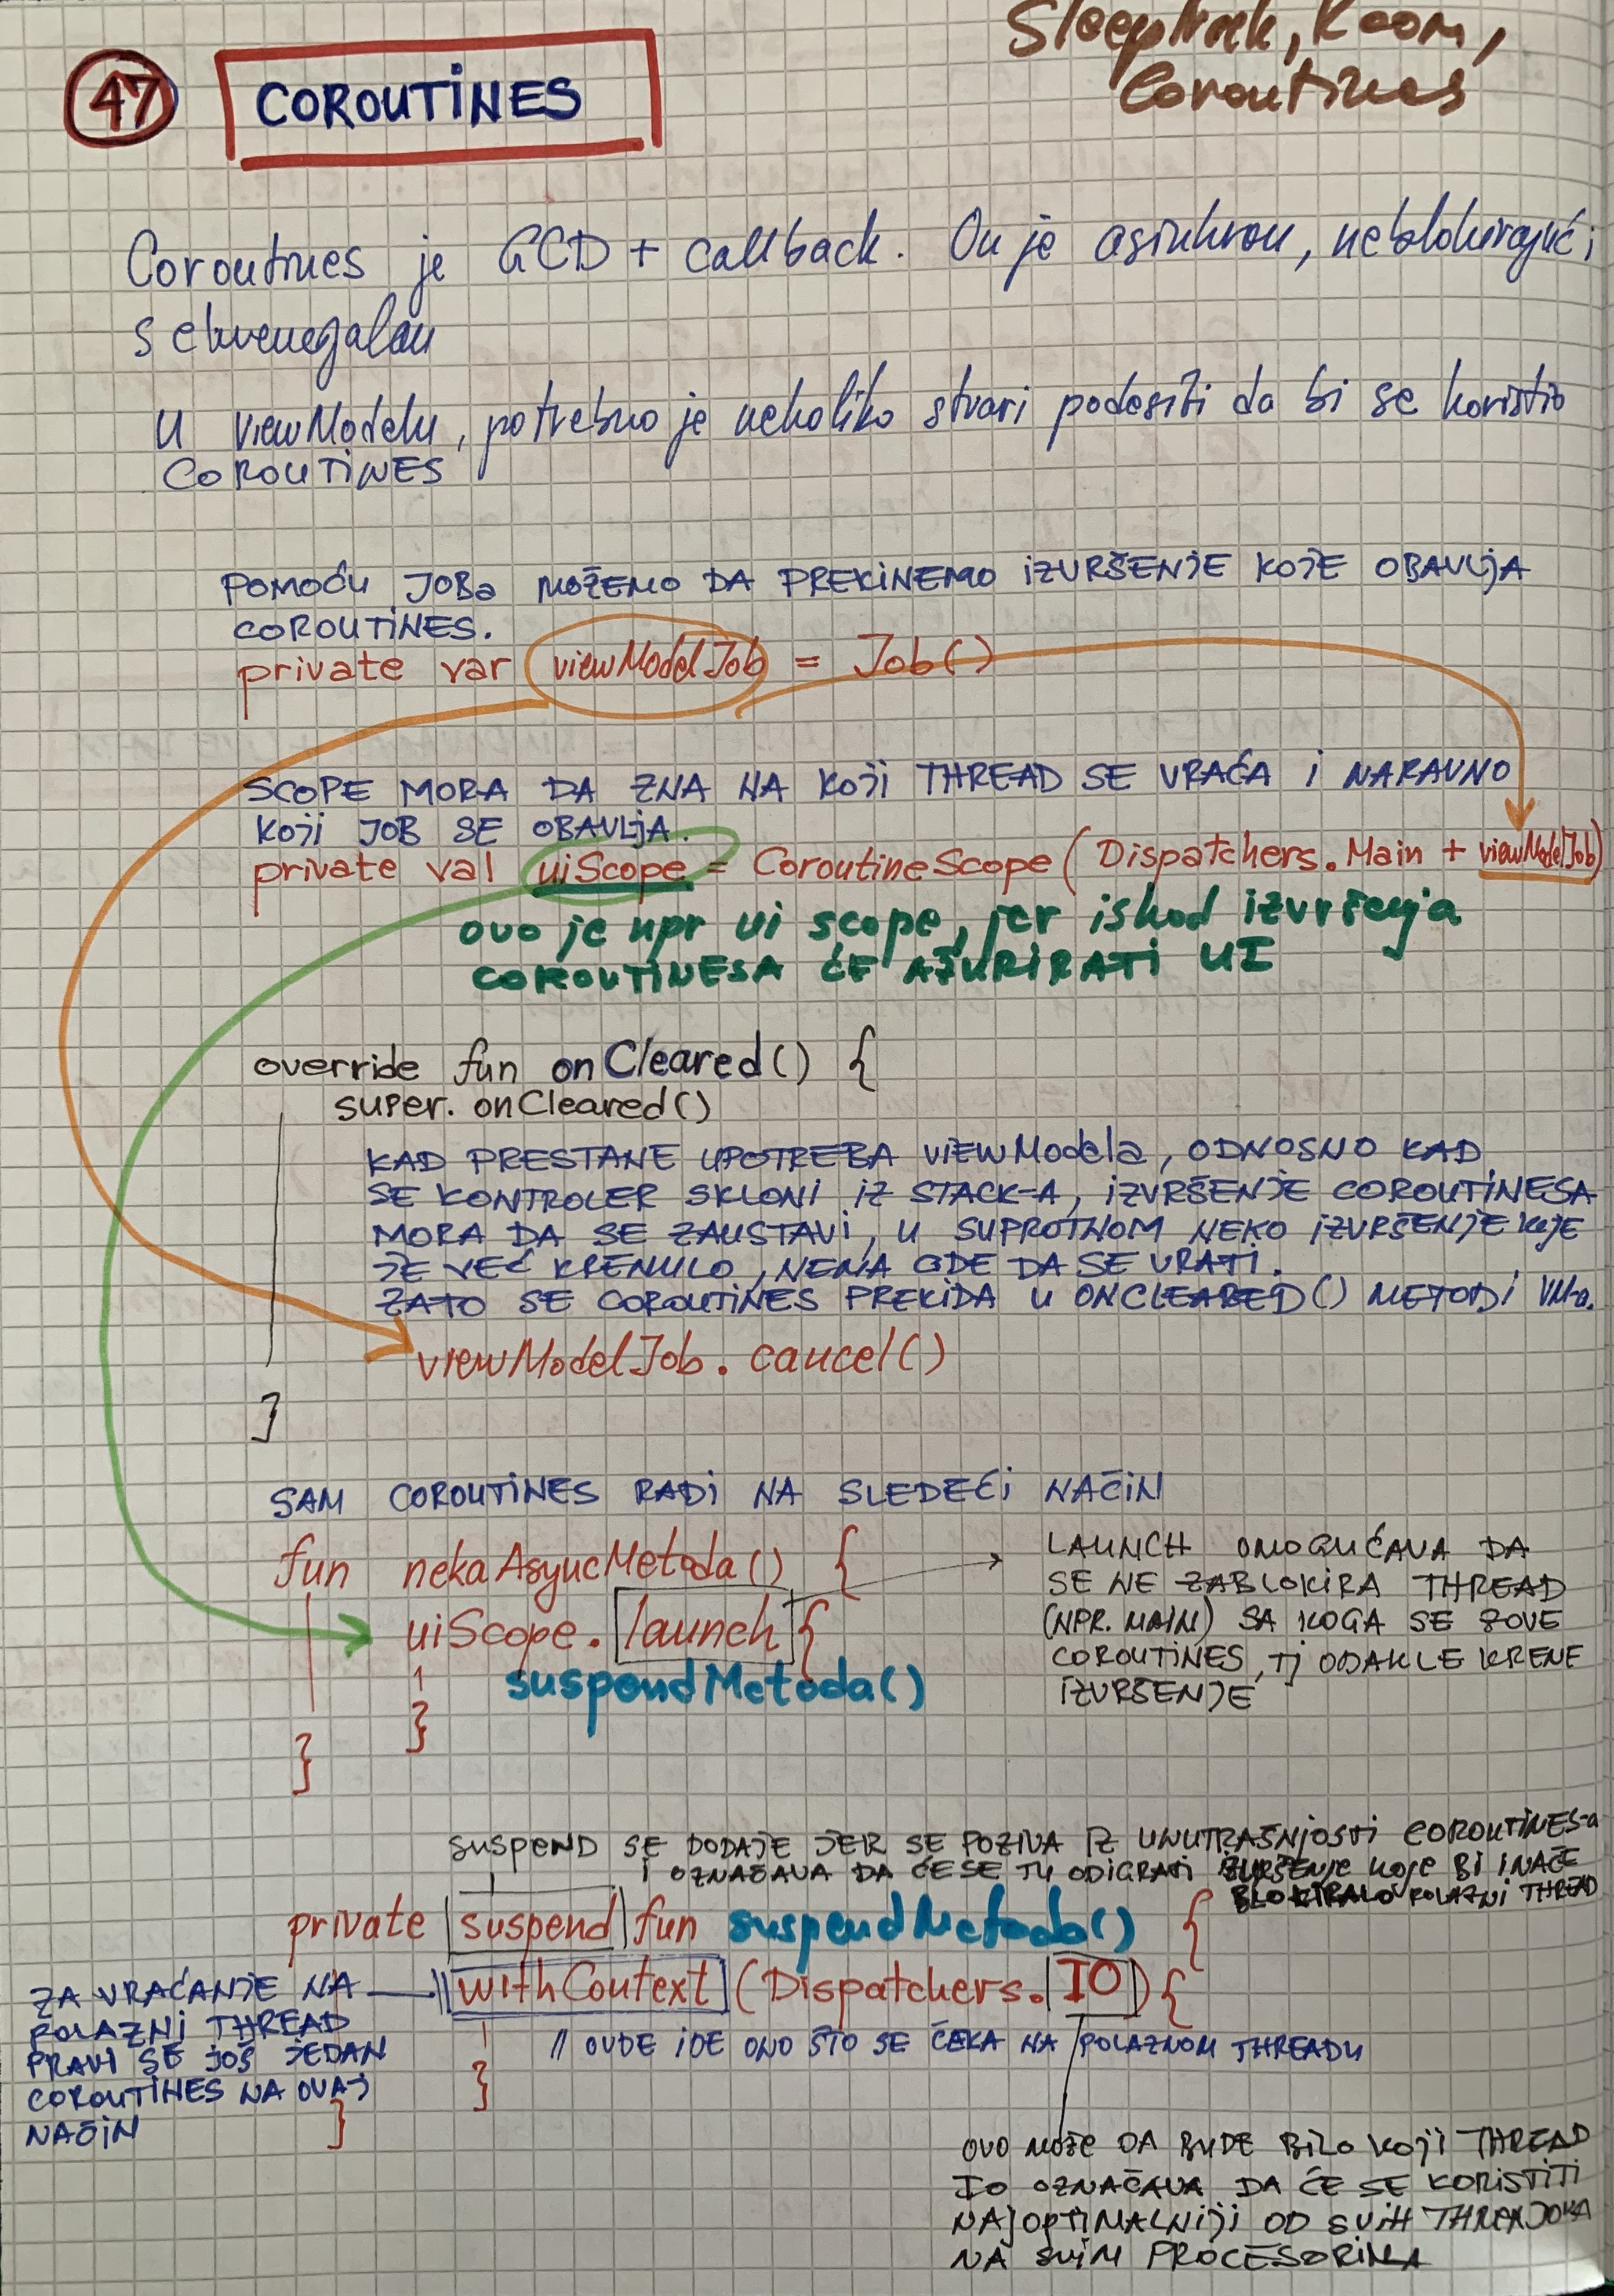 Sleeptrack, Room,
Coroutines
47
COROUTINES
Coroutines je GCD + callback. On je asinhron, neblokirajući,
sekvencijalan
U viewModelu, potrebno je nekoliko stvari podesiti da bi se koristio
COROUTINES
POMOĆU JOBa MOŽEMO DA PREKINEMO IZVRŠENJE KOJE OBAVLJA
COROUTINES.
private var viewModelJob = Job()
SCOPE MORA DA ZNA NA KOJI THREAD SE VRAĆA I NARAVNO
KOJI JOB SE OBAVLJA.
private val uiScope = CoroutineScope(Dispatchers.Main + viewModelJob)
ovo je npr ui scope, jer ishod izvršenja
COROUTINESA ĆE AŽURIRATI UI
override fun onCleared() {
super.onCleared()
KAD PRESTANE UPOTREBA VIEWModela, ODNOSNO KAD
SE KONTROLER SKLONI IZ STACK-A, IZVRŠENJE COROUTINESA
MORA DA SE ZAUSTAVI, U SUPROTNOM NEKO IZVRŠENJE KOJE
JE VEĆ KRENULO, NEMA GDE DA SE VRATI.
ZATO SE COROUTINES PREKIDA U ONCLEARED() METODI VM-a.
viewModelJob.cancel()
}
SAM COROUTINES RADI NA SLEDEĆI NAČIN
fun nekaAsyncMetoda() {
uiScope.launch {
suspendMetoda()
}
}
LAUNCH OMOGUĆAVA DA
SE NE ZABLOKIRA THREAD
(NPR. MAIN) SA KOGA SE ZOVE
COROUTINES, TJ ODAKLE KRENE
IZVRŠENJE
SUSPEND SE DODAJE JER SE POZIVA IZ UNUTRAŠNJOSTI COROUTINES-a
I OZNAČAVA DA ĆE SE TU ODIGRATI IZVRŠENJE koje BI INAČE
BLOKIRALO POLAZNI THREAD
private suspend fun suspendMetoda() {
withContext (Dispatchers.IO) {
// OVDE IDE ONO ŠTO SE ČEKA NA POLAZNOM THREADU
}
}
ZA VRAĆANJE NA
POLAZNI THREAD
PRAVI SE JOŠ JEDAN
COROUTINES NA OVAJ
NAČIN
OVO MOŽE DA BUDE BILO KOJI THREAD
IO OZNAČAVA DA ĆE SE KORISTITI
NAJOPTIMALNIJI OD SVIH THREADOVA
NA SVIM PROCESORIMA